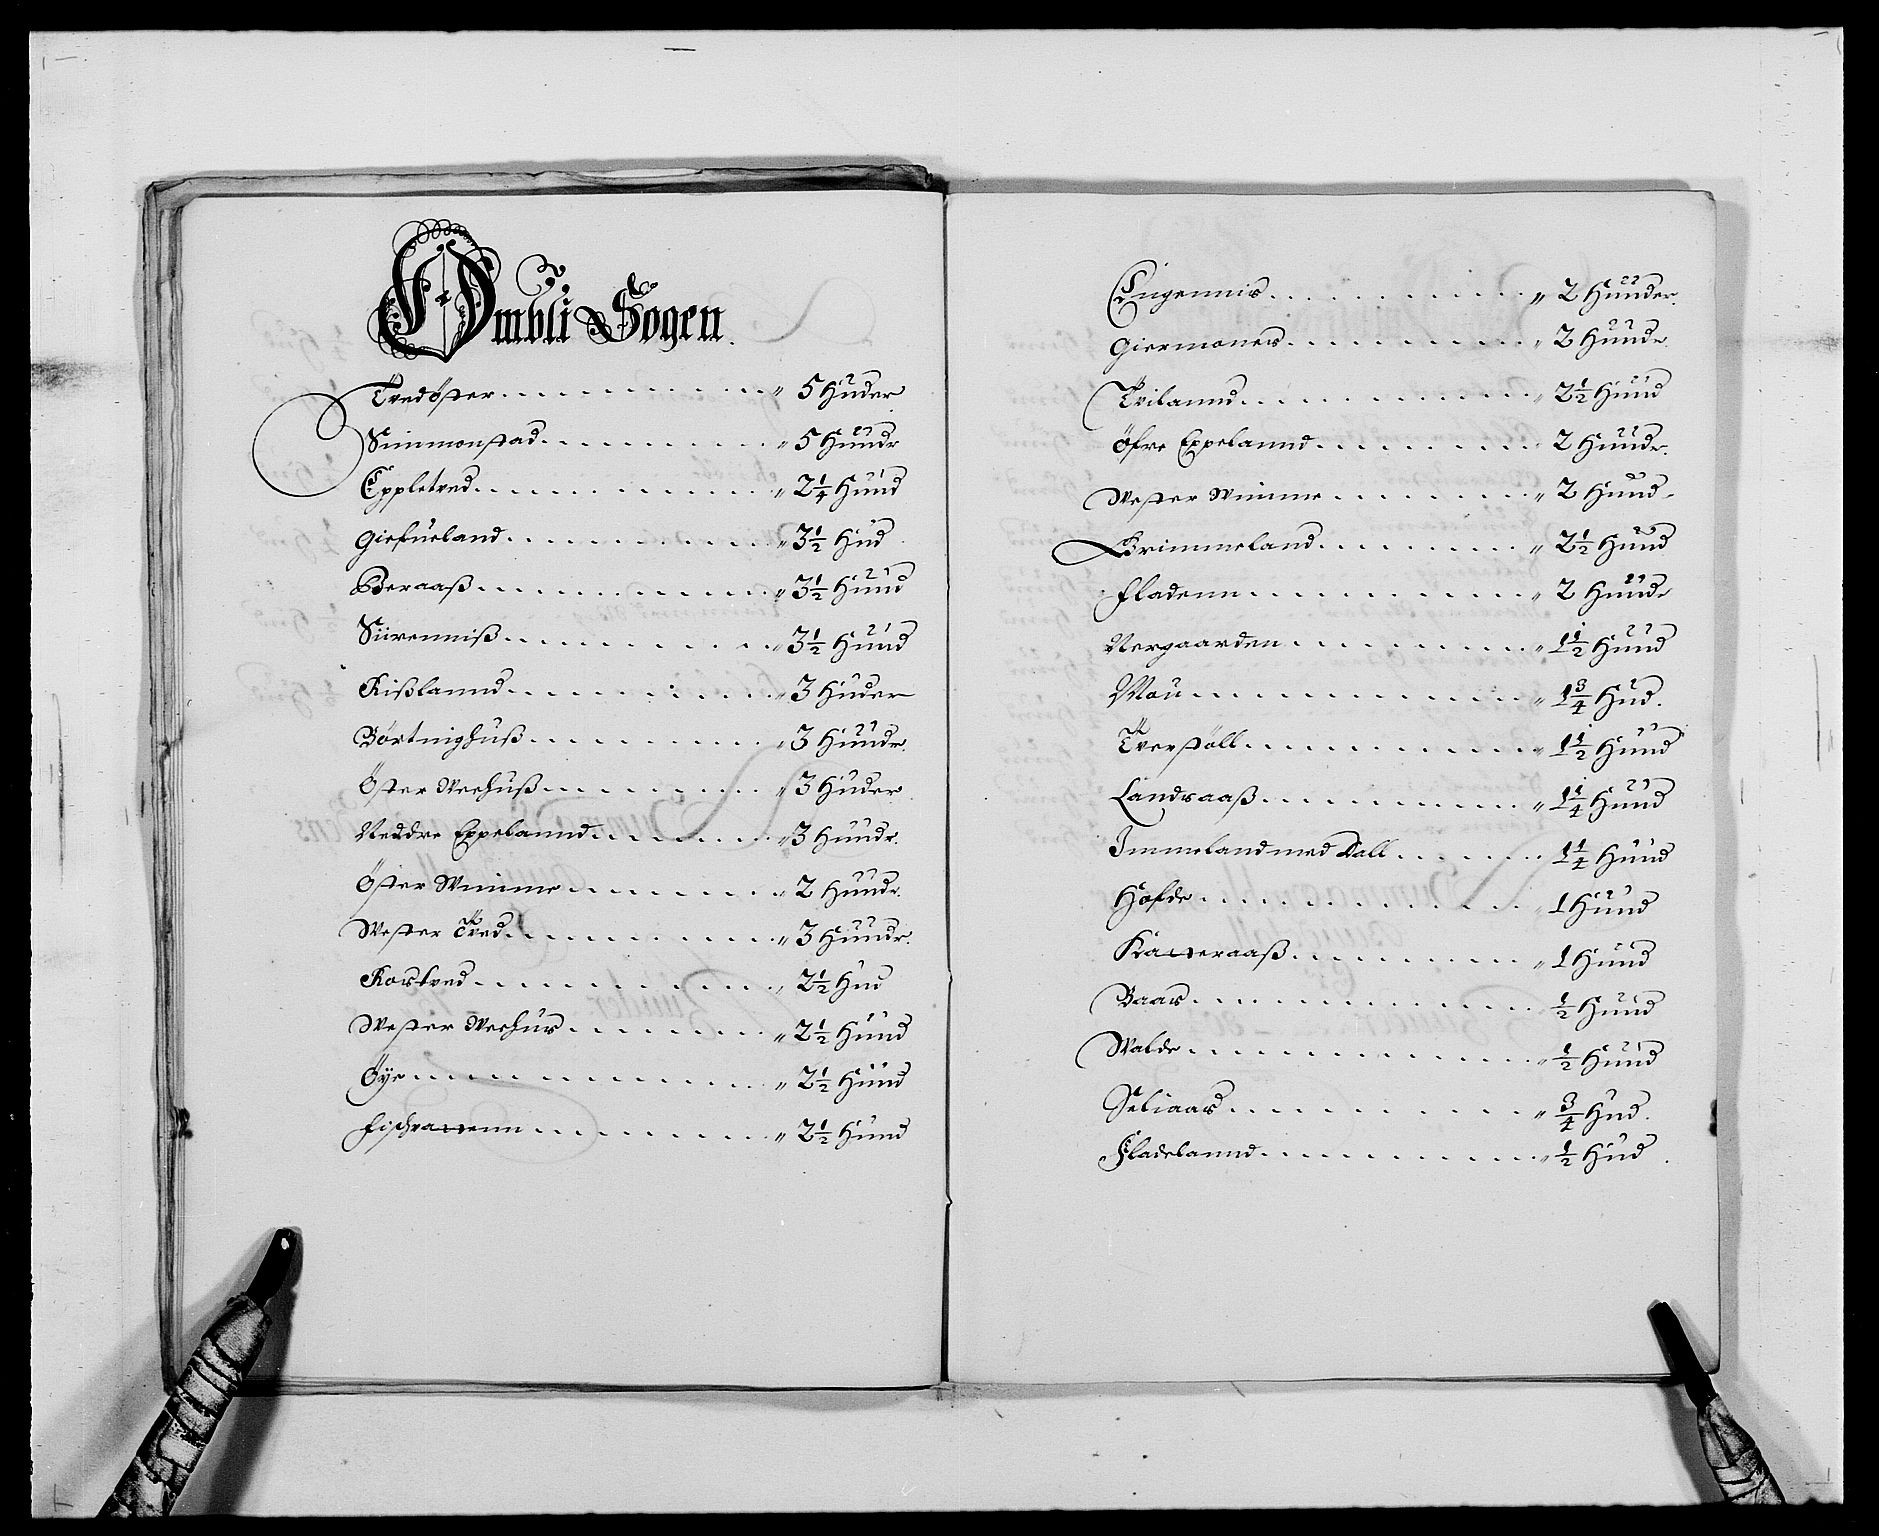 Ombli Sogen.
Tvedöster . . . . . . . . . . . „ 5 Huder
Simmonstad . . . . . . . . . . „ 5 Hunder
Eppletved . . . . . . . . . . . „ 2 1/4 Hund
Giefueland . . . . . . . . . . . „ 3 1/2 Hud
Beraaß . . . . . . . . . . . . „ 3 1/2 Hund
Siirenniß . . . . . . . . . . . „ 3 1/2 Hund
Rißlannd . . . . . . . . . . . „ 3 Huder
Börtnighuß . . . . . . . . . . „ 3 Hundr.
Öster Veehuß . . . . . . . . . „ 3 Huder
Neddre Eppelannd . . . . . . . „ 3 Hundr.
Öster Wimme . . . . . . . . . „ 2 Hundr.
Wester Tved . . . . . . . . . . „ 3 Hundr.
Rostved . . . . . . . . . . . . „ 2 1/2 Hud
Wester Veehus . . . . . . . . „ 2 1/2 Hund
Öye . . . . . . . . . . . . . . „ 2 1/2 Hund
Fischvannenn . . . . . . . . . „ 2 1/2 Hund
Engennis . . . . . . . . . . . „ 2 Hunder.
Giermones . . . . . . . . . . „ 2 Hundr.
Tvilannd . . . . . . . . . . . „ 2 1/2 Hund
Öfre Eppelannd . . . . . . . . „ 2 Hundr.
Wester Wimme . . . . . . . . „ 2 Hund.
Brimmeland . . . . . . . . . . „ 2 1/2 Hund
Fladenn . . . . . . . . . . . . „ 2 Hundr
Vergaarden . . . . . . . . . . „ 1 1/2 Hund
Mou . . . . . . . . . . . . . . „ 1 3/4 Hud.
Tverstöll . . . . . . . . . . . „ 1 1/2 Hund
Landraaß . . . . . . . . . . . „ 1 1/4 Hund
Immeland med Dall . . . . . . „ 1 1/4 Hund
Hofde . . . . . . . . . . . . . „ 1 Hund
Kaaveraaß . . . . . . . . . . „ 1 Hund
Baas . . . . . . . . . . . . . „ 1/2 Hund
Walde . . . . . . . . . . . . . „ 1/2 Hund
Seliaas . . . . . . . . . . . . „ 3/4 Hud.
Fladelannd . . . . . . . . . . „ 1/2 Hud.